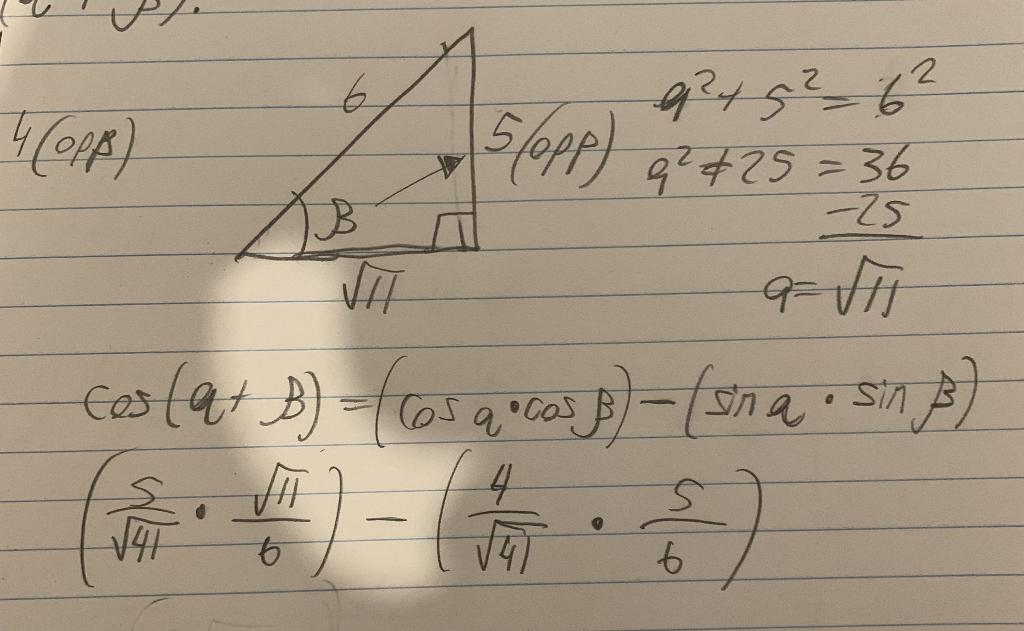 6
4(opp)
5(opp)
B
√11
a² + 5² = 6²
a² + 25 = 36
-25
a = √11
cos(a + B) = (cos a · cos β) - (sin a · sin β)
(5/√41 · √11/6) - (4/√41 · 5/6)